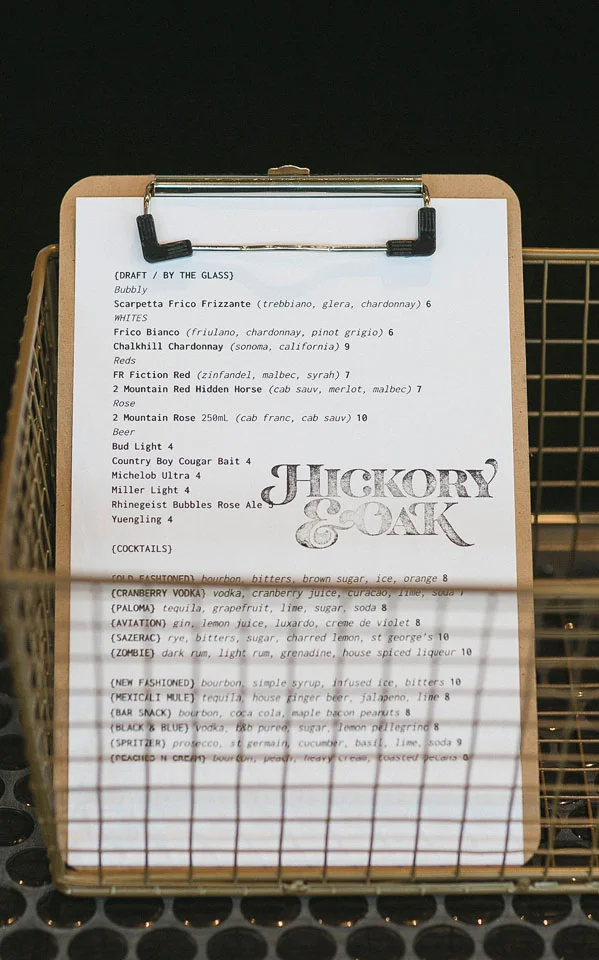 {DRAFT / BY THE GLASS}
Bubbly
Scarpetta Frico Frizzante (trebbiano, glera, chardonnay) 6
WHITES
Frico Bianco (friulano, chardonnay, pinot grigio) 6
Chalkhill Chardonnay (sonoma, california) 9
Reds
FR Fiction Red (zinfandel, malbec, syrah) 7
2 Mountain Red Hidden Horse (cab sauv, merlot, malbec) 7
Rose
2 Mountain Rose 250mL (cab franc, cab sauv) 10
Beer
Bud Light 4
Country Boy Cougar Bait 4
Michelob Ultra 4
Miller Light 4
Rhinegeist Bubbles Rose Ale
Yuengling 4
HICKORY
& OAK
{COCKTAILS}
{OLD FASHIONED} bourbon, bitters, brown sugar, ice, orange 8
{CRANBERRY VODKA} vodka, cranberry juice, curacao, lime, soda 7
{PALOMA} tequila, grapefruit, lime, sugar, soda 8
{AVIATION} gin, lemon juice, luxardo, creme de violet 8
{SAZERAC} rye, bitters, sugar, charred lemon, st george's 10
{ZOMBIE} dark rum, light rum, grenadine, house spiced liqueur 10
{NEW FASHIONED} bourbon, simple syrup, infused ice, bitters 10
{MEXICALI MULE} tequila, house ginger beer, jalapeno, lime 8
{BAR SNACK} bourbon, coca cola, maple bacon peanuts 8
{BLACK & BLUE} vodka, b&b puree, sugar, lemon pellegrino 8
{SPRITZER} prosecco, st germain, cucumber, basil, lime, soda 9
{PEACHES N CREAM} bourbon, peach, heavy cream, toasted pecans